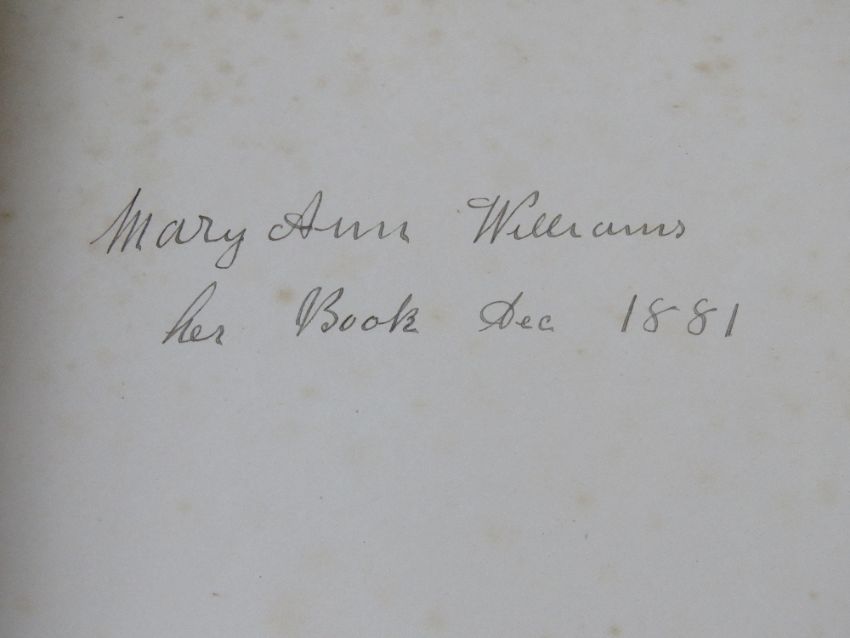 Mary Ann Williams
her Book Dec 1881